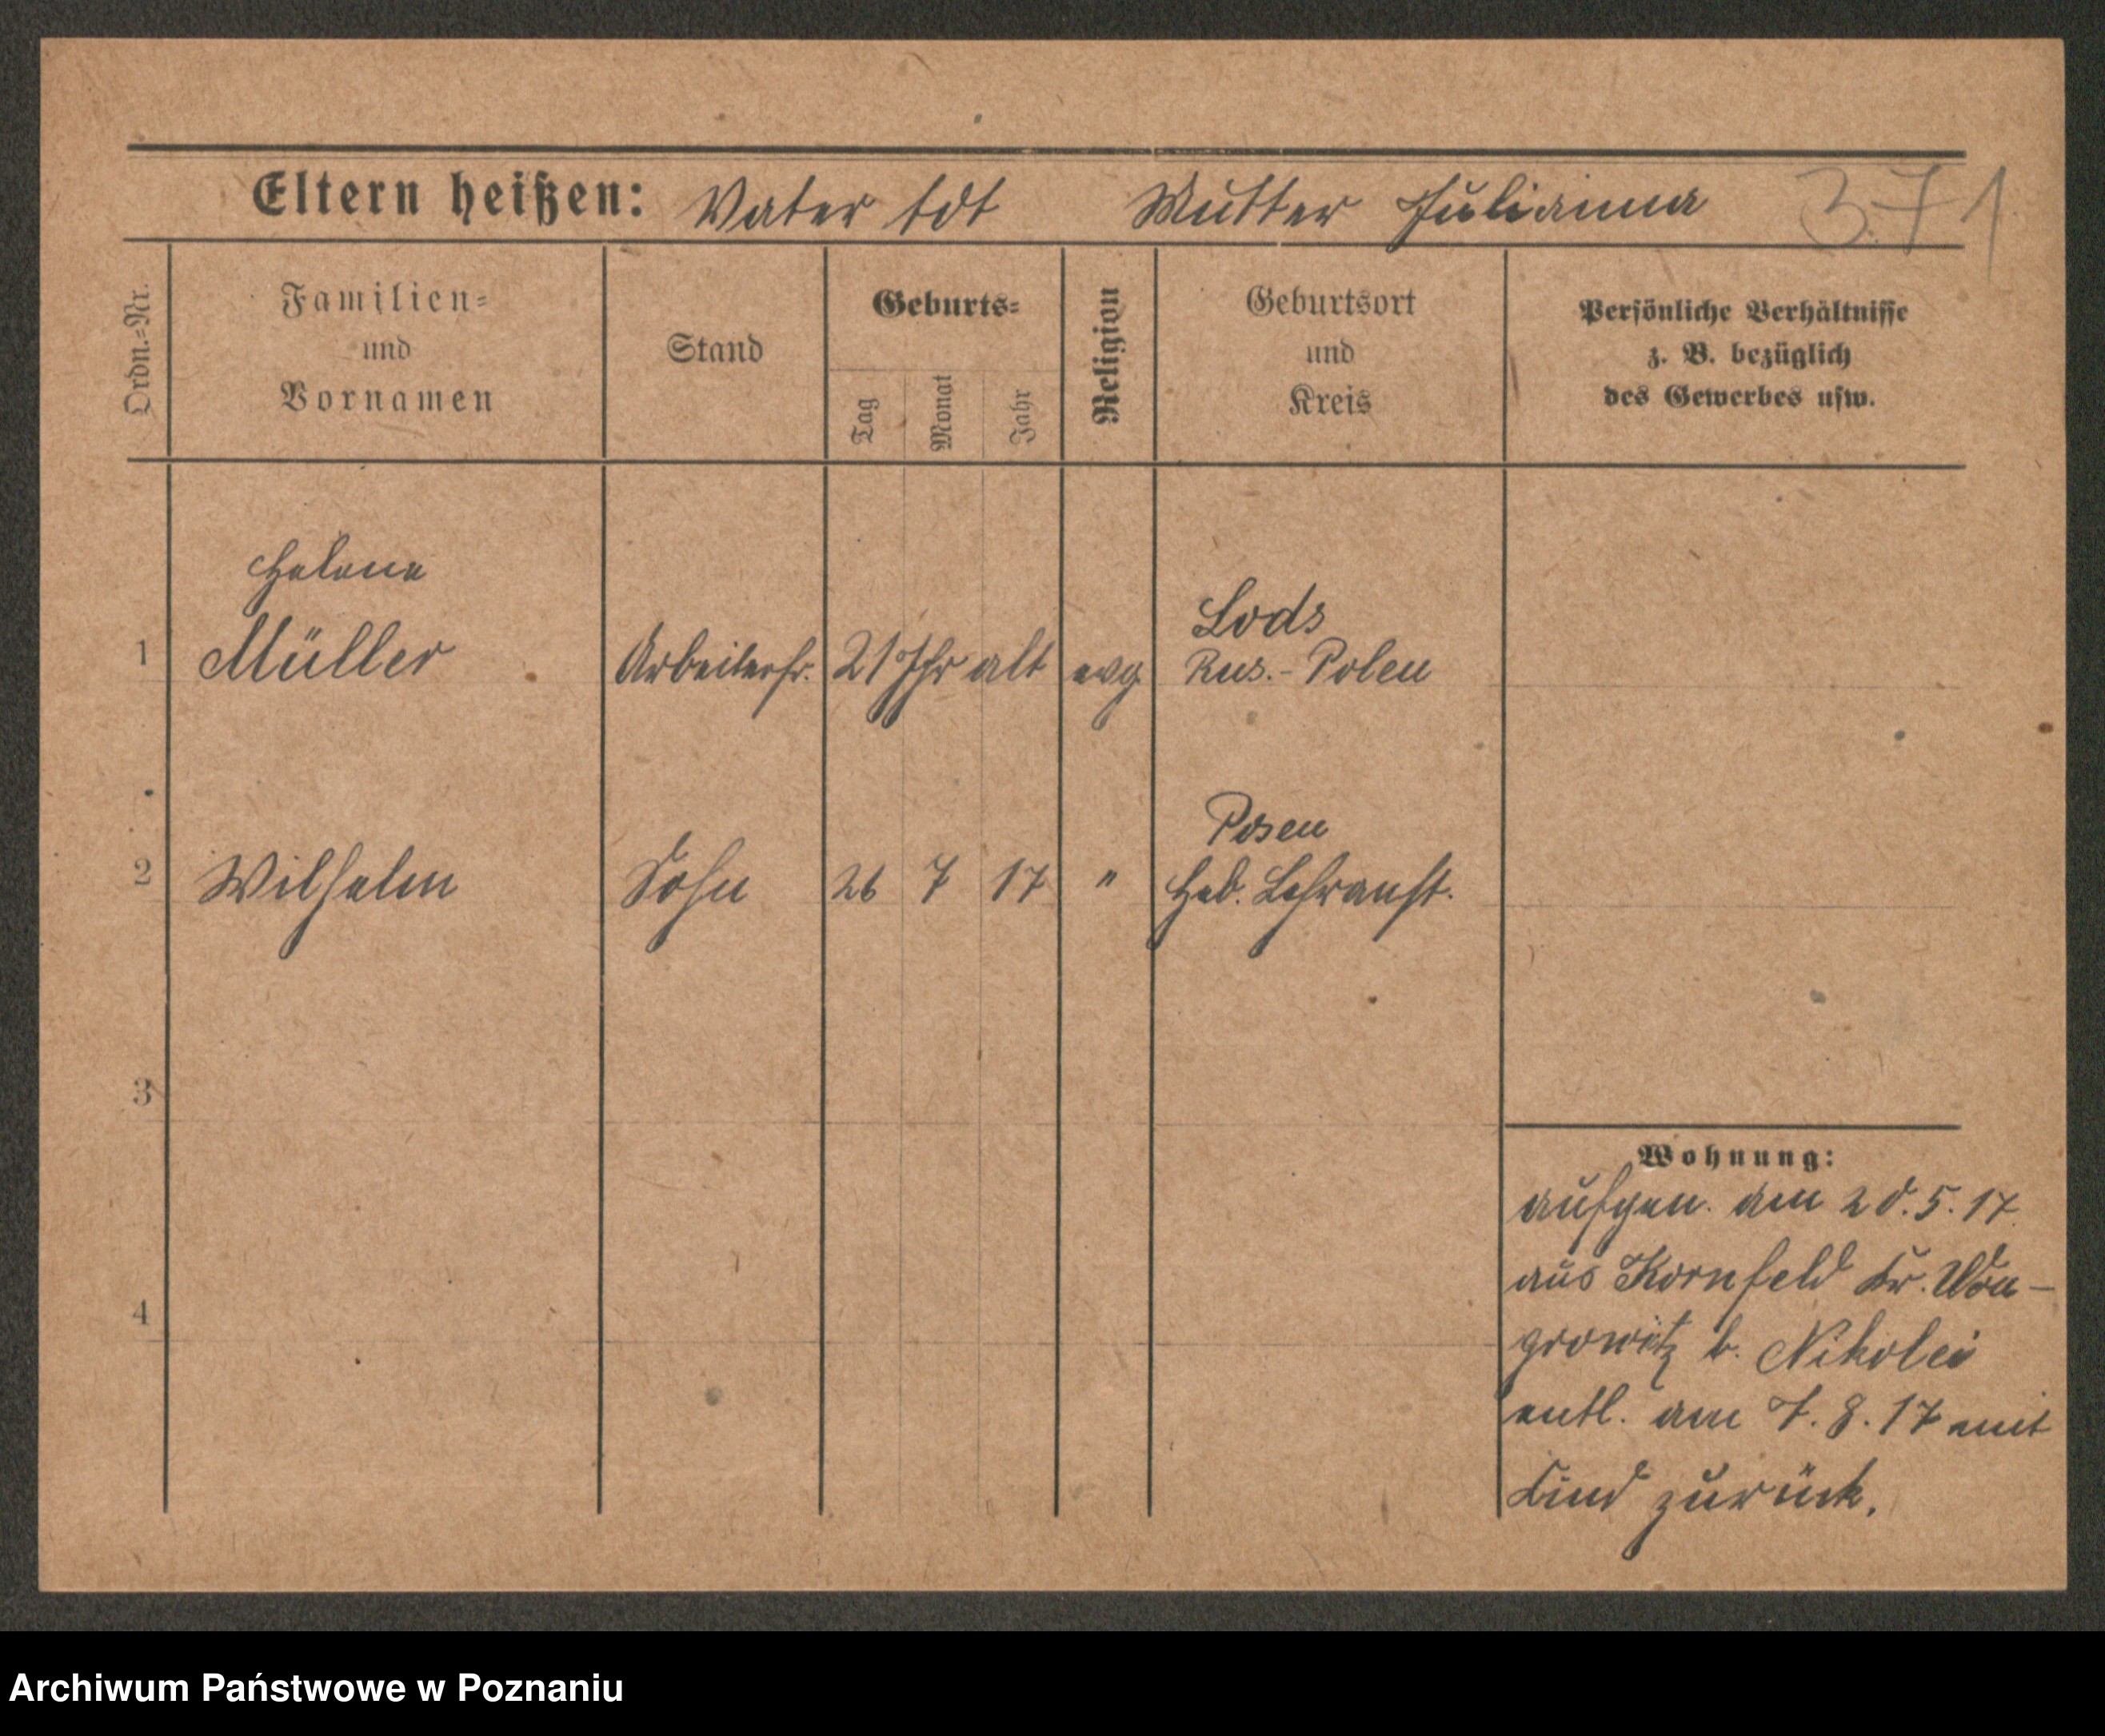 Eltern heißen: Vater tot Mutter Julianna 371
Ordn.=Nr.
Familien=
und
Vornamen
Stand
Geburts=
Tag
Monat
Jahr
Religion
Geburtsort
und
Kreis
Persönliche Verhältnisse
z. B. bezüglich
des Gewerbes usw.
Helene
Lods
1 Müller Arbeiterfr. 21 Jhr alt evg Rus.-Polen
Posen
2 Wilhelm Sohn 26 7 17 " Heb. Lehranst.
3
4
Wohnung:
aufgen. am 20.5.17.
aus Kornfeld Kr. Won-
growitz b. Nikolei
entl. am 7.8.17 mit
Kind zurück.
Archiwum Państwowe w Poznaniu